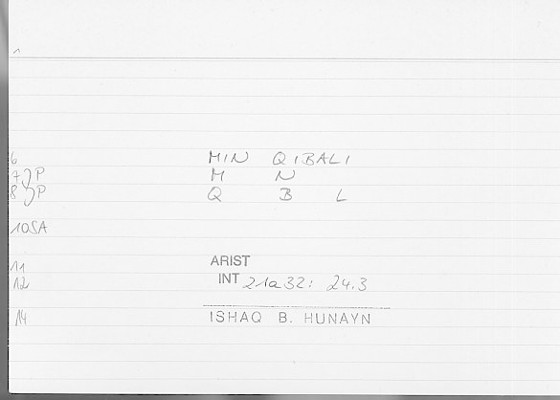 1
6 MIN QIBALI
7 JP M N
8 JP Q B L
10SA
11 ARIST
12 INT 21a32: 24.3
14 ISHAQ B. HUNAYN